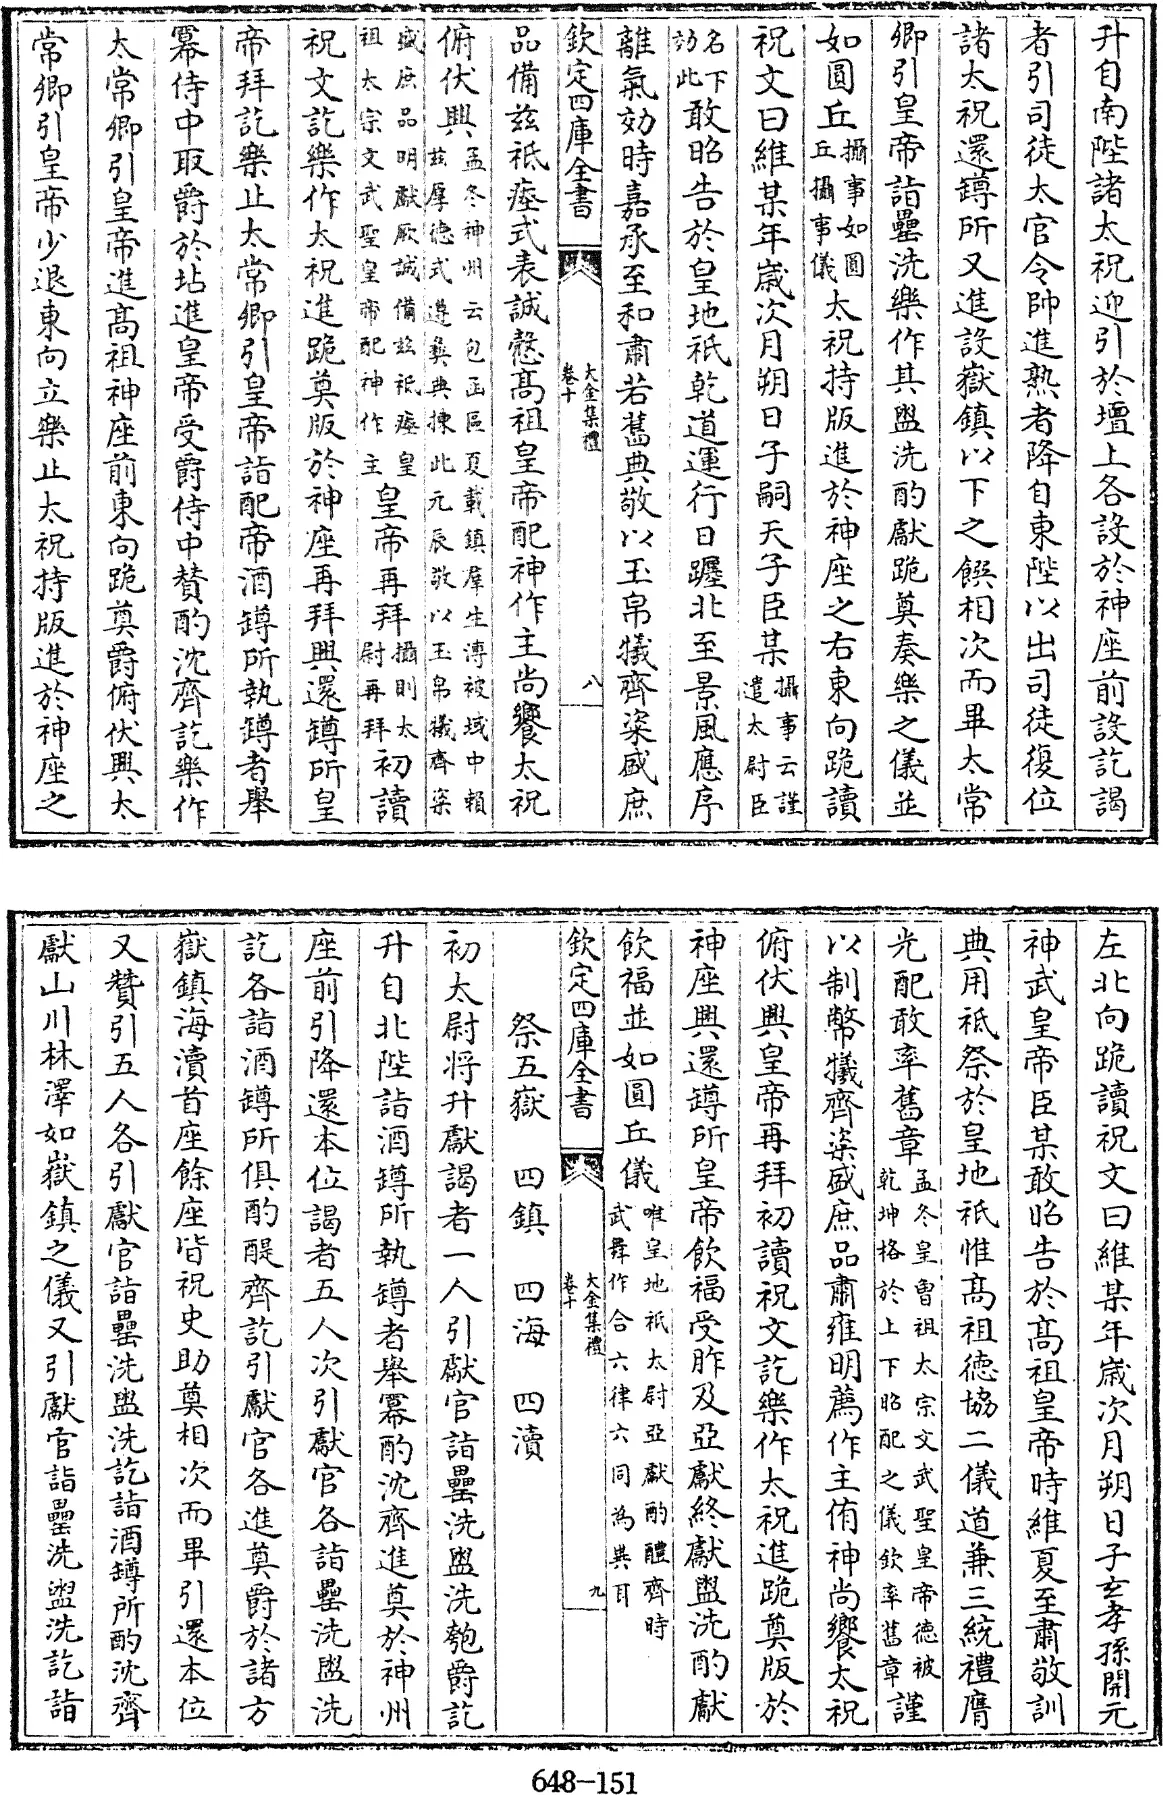 升自南陛諸太祝迎引於壇上各設於神座前設訖謁
者引司徒太官令帥進熟者降自東陛以出司徒復位
諸太祝還罇所又進設嶽鎮以下之饌相次而畢太常
卿引皇帝詣罍洗樂作其盥洗酌獻跪奠奏樂之儀並
如圓丘攝事如圓丘攝事儀太祝持版進於神座之右東向跪讀
祝文曰維某年歲次月朔日子嗣天子臣某攝事云謹遣太尉臣
名下倣此敢昭告於皇地祇乾道運行日躔北至景風應序
離氣効時嘉承至和肅若舊典敬以玉帛犧齊粢盛庶
欽定四庫全書 大金集禮卷十 八
品備兹祗瘞式表誠慤髙祖皇帝配神作主尚饗太祝
俯伏興孟冬神州云包函區夏載鎮羣生溥被域中賴兹厚德式遵彝典揀此元辰敬以玉帛犧齊粢
盛庶品明獻厥誠備兹祗瘞皇祖太宗文武聖皇帝配神作主皇帝再拜攝則太尉再拜初讀
祝文訖樂作太祝進跪奠版於神座再拜興還罇所皇
帝拜訖樂止太常卿引皇帝詣配帝酒罇所執罇者舉
冪侍中取爵於坫進皇帝受爵侍中贊酌沈齊訖樂作
太常卿引皇帝進髙祖神座前東向跪奠爵俯伏興太
常卿引皇帝少退東向立樂止太祝持版進於神座之
左北向跪讀祝文曰維某年歲次月朔日子玄孝孫開元
神武皇帝臣某敢昭告於髙祖皇帝時維夏至肅敬訓
典用祗祭於皇地祇惟髙祖德協二儀道兼三統禮膺
光配敢率舊章孟冬皇曽祖太宗文武聖皇帝德被乾坤格於上下昭配之儀欽率舊章謹
以制幣犧齊粢盛庶品肅雍明薦作主侑神尚饗太祝
俯伏興皇帝再拜初讀祝文訖樂作太祝進跪奠版於
神座興還罇所皇帝飲福受胙及亞獻終獻盥洗酌獻
飲福並如圓丘儀唯皇地祇太尉亞獻酌醴齊時武舞作合六律六同為異耳
欽定四庫全書 大金集禮卷十 九
祭五嶽 四鎮 四海 四瀆
初太尉将升獻謁者一人引獻官詣罍洗盥洗匏爵訖
升自北陛詣酒罇所執罇者舉冪酌沈齊進奠於神州
座前引降還本位謁者五人次引獻官各詣罍洗盥洗
訖各詣酒罇所俱酌醍齊訖引獻官各進奠爵於諸方
嶽鎮海瀆首座餘座皆祝史助奠相次而畢引還本位
又贊引五人各引獻官詣罍洗盥洗訖詣酒罇所酌沈齊
獻山川林澤如嶽鎮之儀又引獻官詣罍洗盥洗訖詣
648-151